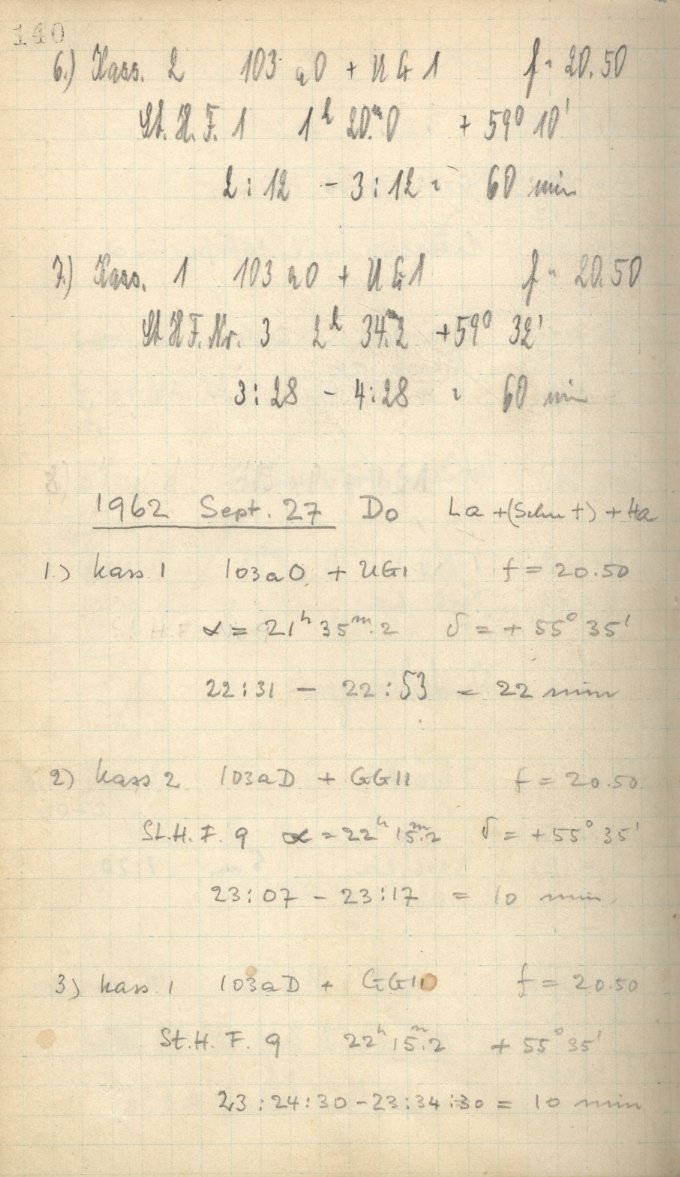 140
6.) Kass. 2 103 aO + UG 1 f = 20.50
St. H. F. 1 1ʰ 20.ᵐ0 + 59° 10'
2:12 - 3:12 = 60 min
7.) Kass. 1 103 aO + UG1 f = 20.50
St. H F. Nr. 3 2ʰ 34.ᵐ2 +59° 32'
3:28 - 4:28 = 60 min
1962 Sept. 27 Do La + (Schu +) + Ha
1.) Kass 1 103aO + UG1 f = 20.50
α = 21ʰ 35ᵐ.2 δ = + 55° 35'
22:31 - 22:53 = 22 min
2) Kass 2 103aD + GG11 f = 20.50
St.H. F. 9 α = 22ʰ 15ᵐ.2 δ = +55° 35'
23:07 - 23:17 = 10 min
3) Kass. 1 103aD + GG11 f = 20.50
St.H. F. 9 22ʰ 15ᵐ.2 + 55° 35'
23:24:30 - 23:34:30 = 10 min